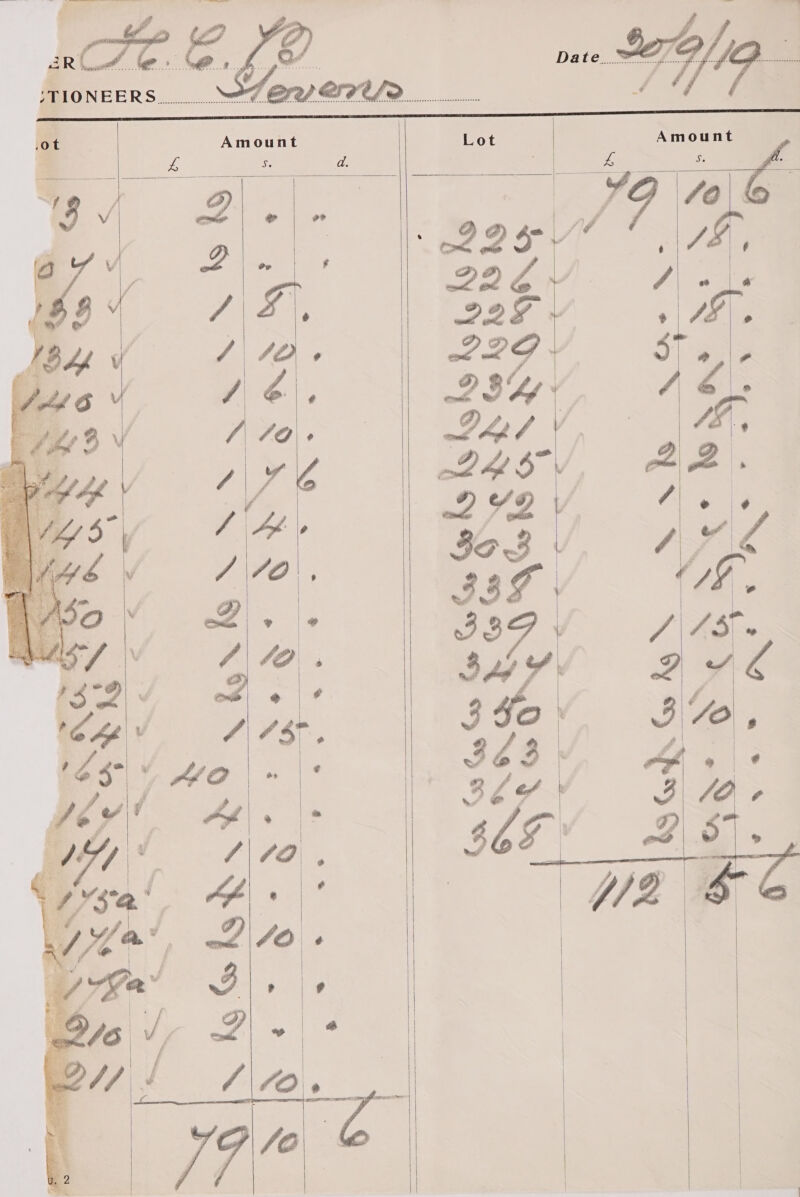 ER H. C. B
TIONEERS Stevens
Date 30/9/19
ot Amount
£ s. d.
13 ✓ 2 . .
07 ✓ 2 . .
133 ✓ 1 8 .
134 ✓ 1 10 .
140 ✓ 1 6 .
143 ✓ 1 10 .
144 ✓ 1 7 6
145 ✓ 1 4 .
146 ✓ 1 10 .
150 ✓ 2 . .
151 ✓ 1 10 .
152 ✓ 2 . .
164 ✓ 1 15 .
165 ✓ 40 . .
167 ✓ 4 . .
171 ✓ 1 10 .
175a ✓ 4 . .
176a ✓ 2 10 .
178a ✓ 3 . .
210 ✓ 2 . .
211 ✓ 1 10 .
79 10 6
Lot Amount
£ s. d.
79 10 6
225 ✓ . 18 .
226 ✓ 1 . .
228 ✓ . 18 .
229 ✓ 5 . .
234 ✓ 1 6 .
241 ✓ 18 .
245 ✓ 2 2 .
272 ✓ 1 . .
303 ✓ 1 7 6
338 ✓ 18 .
339 ✓ 1 15 .
347 ✓ 2 7 6
350 ✓ 3 10 .
363 ✓ 4 . .
367 ✓ 3 10 .
368 ✓ 2 5 .
112 5 6
2